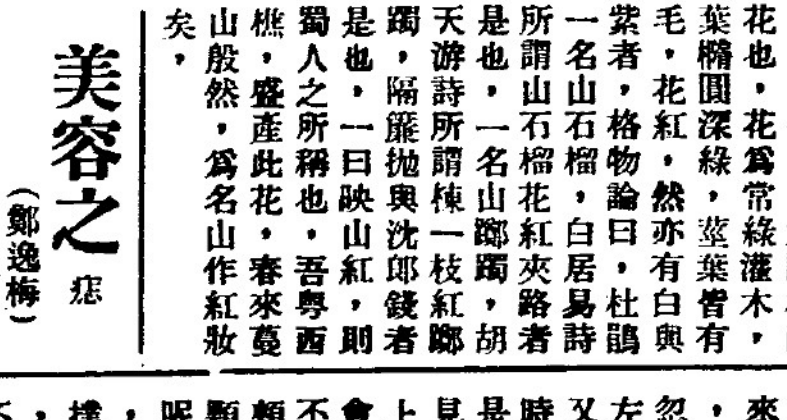 花也，花爲常綠灌木，
葉橢圓深綠，莖葉皆有
毛，花紅，然亦有白與
紫者，格物論曰，杜鵑
一名山石榴，白居易詩
所謂山石榴花紅夾路者
是也，一名山躑躅，胡
天游詩所謂棟一枝紅躑
躅，隔簾抛與沈郎錢者
是也，一曰映山紅，則
蜀人之所稱也，吾粤西
樵，盛產此花，春來蔓
山殷然，爲名山作紅妝
矣，
美容之痣
（鄭逸梅）
來
忽，
左
又
時
是
見
上
會
不
頰
顆
呢
，
撲
，